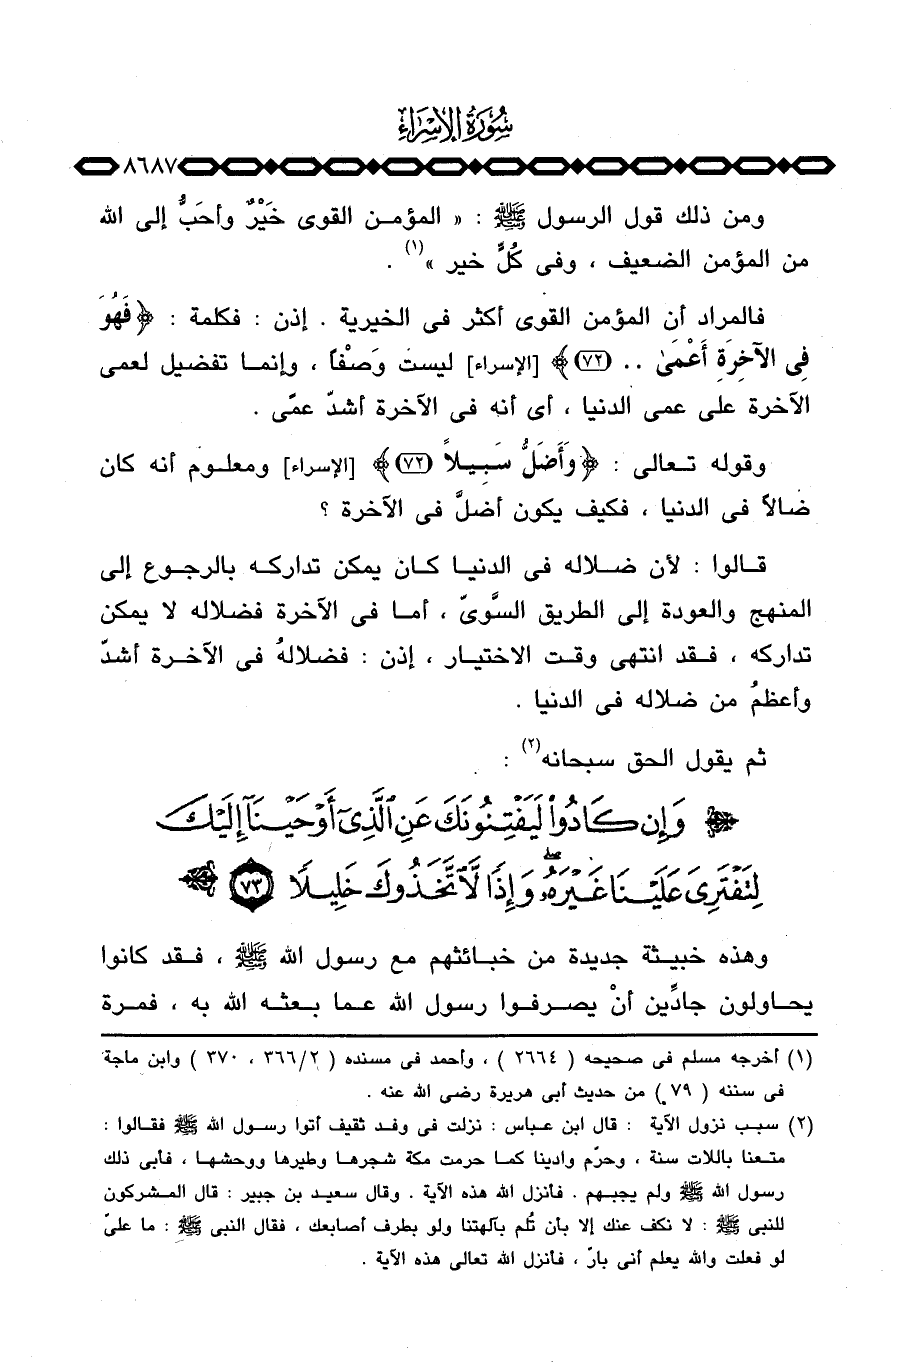 سُورَةُ الإِسْرَاءِ
٨٦٨٧
ومن ذلك قول الرسول ﷺ : « المؤمـن القوى خَيْرٌ وأحَبُّ إلى الله
من المؤمن الضعيف ، وفى كُلٍّ خير »(١) .
فالمراد أن المؤمن القوى أكثر فى الخيرية . إذن : فكلمة : ﴿ فَهُوَ
فِى الآخِرَةِ أَعْمَىٰ .. (٧٢)﴾ [الإسراء] ليست وَصْفاً ، وإنمـا تفضيل لعمى
الآخرة على عمى الدنيا ، أى أنه فى الآخرة أشدّ عمًى .
وقوله تـعالى : ﴿ وَأَضَلُّ سَبِيلاً (٧٢)﴾ [الإسراء] ومعلـوم أنه كان
ضالاً فى الدنيا ، فكيف يكون أضلَّ فى الآخرة ؟
قـالوا : لأن ضـلاله فى الدنيـا كـان يمكن تداركـه بالرجـوع إلى
المنهج والعودة إلى الطريق السَّوىّ ، أمـا فى الآخرة فضلاله لا يمكن
تداركه ، فـقد انتهى وقـت الاختيـار ، إذن : فضلالهُ فى الآخـرة أشدّ
وأعظمُ من ضلاله فى الدنيا .
ثم يقول الحق سبحانه(٢) :
﴿ وَإِن كَادُوا۟ لَيَفْتِنُونَكَ عَنِ ٱلَّذِىٓ أَوْحَيْنَآ إِلَيْكَ
لِتَفْتَرِىَ عَلَيْنَا غَيْرَهُۥ ۖ وَإِذًا لَّٱتَّخَذُوكَ خَلِيلًا ٧٣ ﴾
وهذه خبيثة جديدة من خبـائثهم مع رسول الله ﷺ ، فـقد كانوا
يحـاولون جادِّين أنْ يصـرفـوا رسول الله عـما بـعثـه الله به ، فمرة
(١) أخرجه مسلم فى صحيحه ( ٢٦٦٤ ) ، وأحمد فى مسنده ( ٣٦٦/٢ ، ٣٧٠ ) وابن ماجة
فى سننه ( ٧٩ ) من حديث أبى هريرة رضى الله عنه .
(٢) سبـب نزول الآية : قال ابن عبـاس : نزلت فى وفـد ثقيف أتوا رسـول الله ﷺ فقـالوا :
متـعنا باللات سنة ، وحرّم وادينا كمـا حرمت مكة شجرهـا وطيرها ووحشهـا ، فأبى ذلك
رسول الله ﷺ ولم يجبـهم . فأنزل الله هذه الآية . وقال سعيـد بن جبير : قال المـشركون
للنبى ﷺ : لا نكف عنك إلا بأن تُلم بآلهتنا ولو بطرف أصابعك ، فقال النبى ﷺ : ما علىّ
لو فعلت والله يعلم أنى بارّ ، فأنزل الله تعالى هذه الآية .